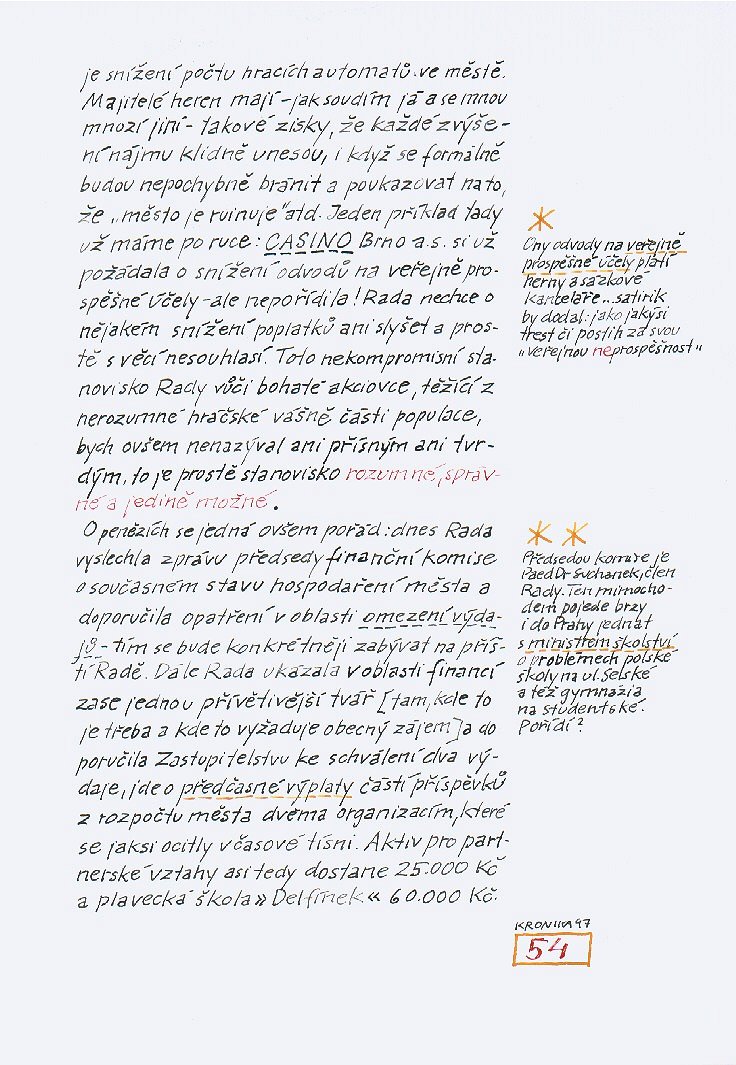 je snížení počtu hracích automatů ve městě.
Majitelé heren mají – jak soudím já a se mnou
mnozí jiní – takové zisky, že každé zvýše-
ní nájmu klidně unesou, i když se formálně
budou nepochybně bránit a poukazovat na to,
že „město je ruinuje" atd. Jeden příklad tady
už máme po ruce: CASINO Brno a.s. si už
požádala o snížení odvodů na veřejně pro-
spěšné účely – ale nepořídila! Rada nechce o
nějakém snížení poplatků ani slyšet a pros-
tě s věcí nesouhlasí. Toto nekompromisní sta-
novisko Rady vůči bohaté akciovce, těžící z
nerozumné hráčské vášně části populace,
bych ovšem nenazýval ani přísným ani tvr-
dým, to je prostě stanovisko rozumné, správ-
né a jedině možné.
O penězích se jedná ovšem pořád: dnes Rada
vyslechla zprávu předsedy finanční komise
o současném stavu hospodaření města a
doporučila opatření v oblasti omezení výda-
jů – tím se bude konkrétněji zabývat na příš-
tí Radě. Dále Rada ukázala v oblasti financí
zase jednou přívětivější tvář [tam, kde to
je třeba a kde to vyžaduje obecný zájem] a do
poručila Zastupitelstvu ke schválení dva vý-
daje, jde o předčasné výplaty částí příspěvků
z rozpočtu města dvěma organizacím, které
se jaksi ocitly v časové tísni. Aktiv pro part-
nerské vztahy asi tedy dostane 25.000 Kč
a plavecká škola » Delfínek « 60.000 Kč.
*
Ony odvody na veřejně
prospěšné účely platí
herny a sázkové
kanceláře... satirik
by dodal: jako jakýsi
trest či postih za svou
"veřejnou neprospěšnost"
* *
Předsedou komise je
PaedDr Suchánek, člen
Rady. Ten mimocho-
dem pojede brzy
i do Prahy jednat
s ministrem školství
o problémech polské
školy na ul. Selské
a též gymnázia
na Studentské.
Pořídí?
KRONIKA 97
54